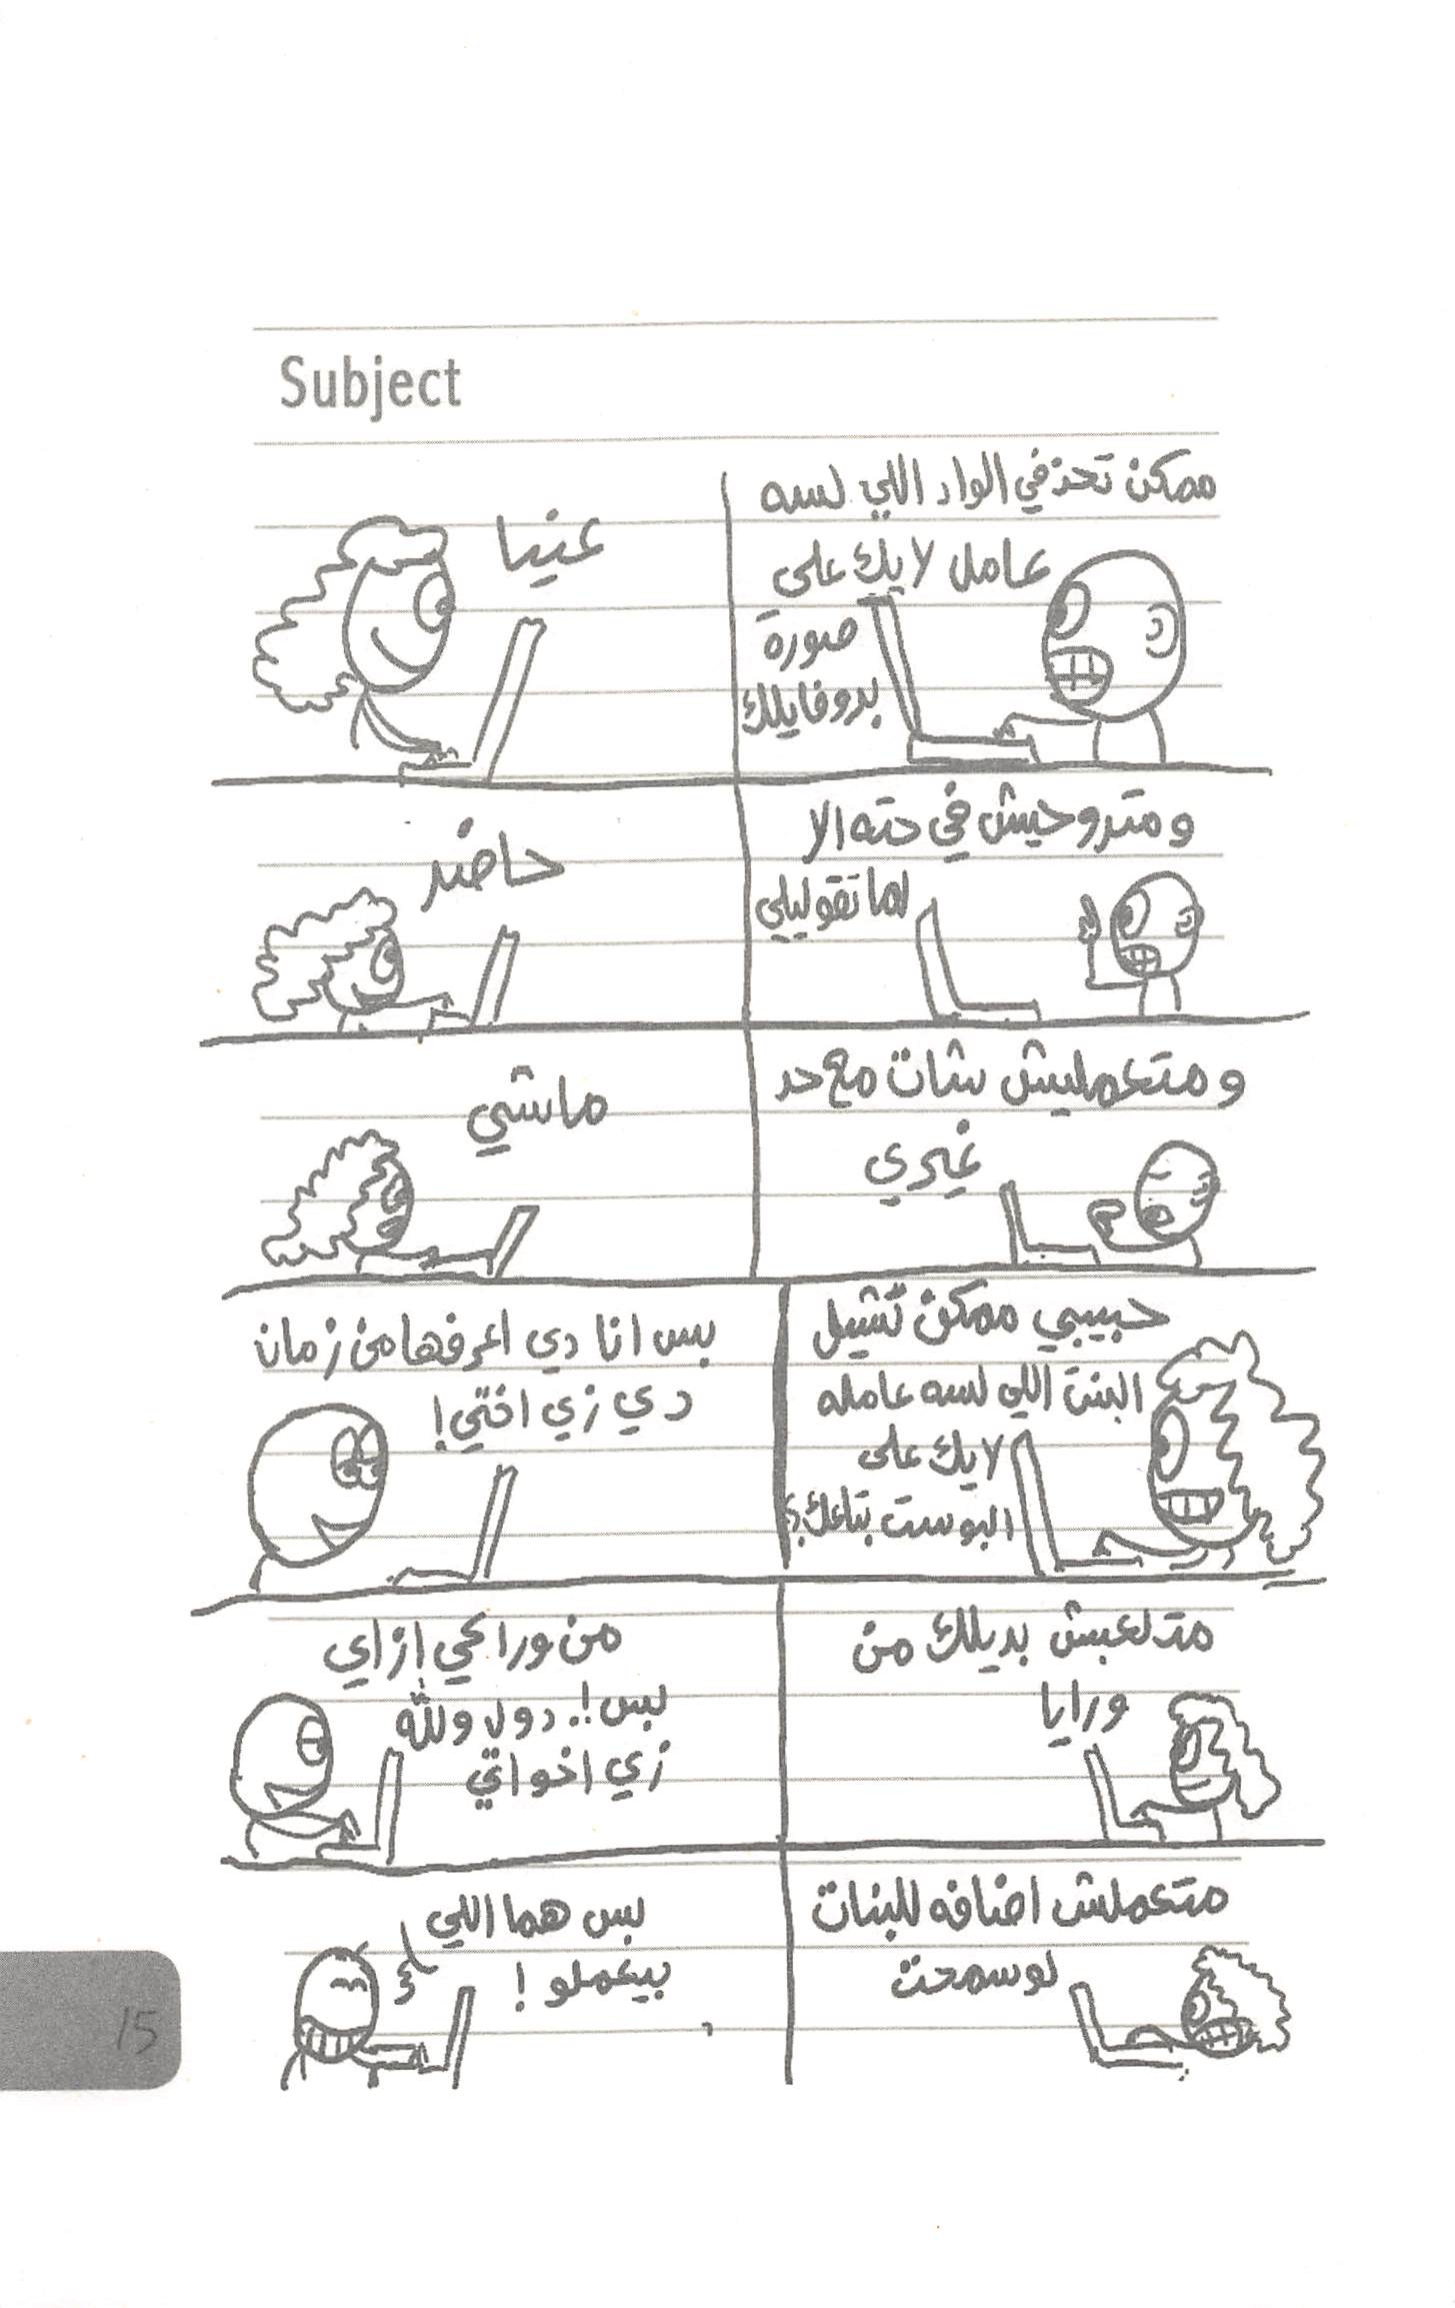 Subject
ممكن تحذفي الواد اللي لسه
عامل لايك على
صورة
بروفايلك
عنيا
ومتروحيش في حته الا
لما تقوليلي
حاضر
ومتعمليش شات مع حد
غيري
ماشي
حبيبي ممكن تشيل
البنت اللي لسه عامله
لايك على
البوست بتاعك؟
بس انا دي اعرفها من زمان
دي زي اختي!
متلعبش بديلك من
ورايا
من وراكي ازاي
بس!. دول والله
زي اخواتي
متعملش اضافه للبنات
لو سمحت
بس هما اللي
بيعملو!
15